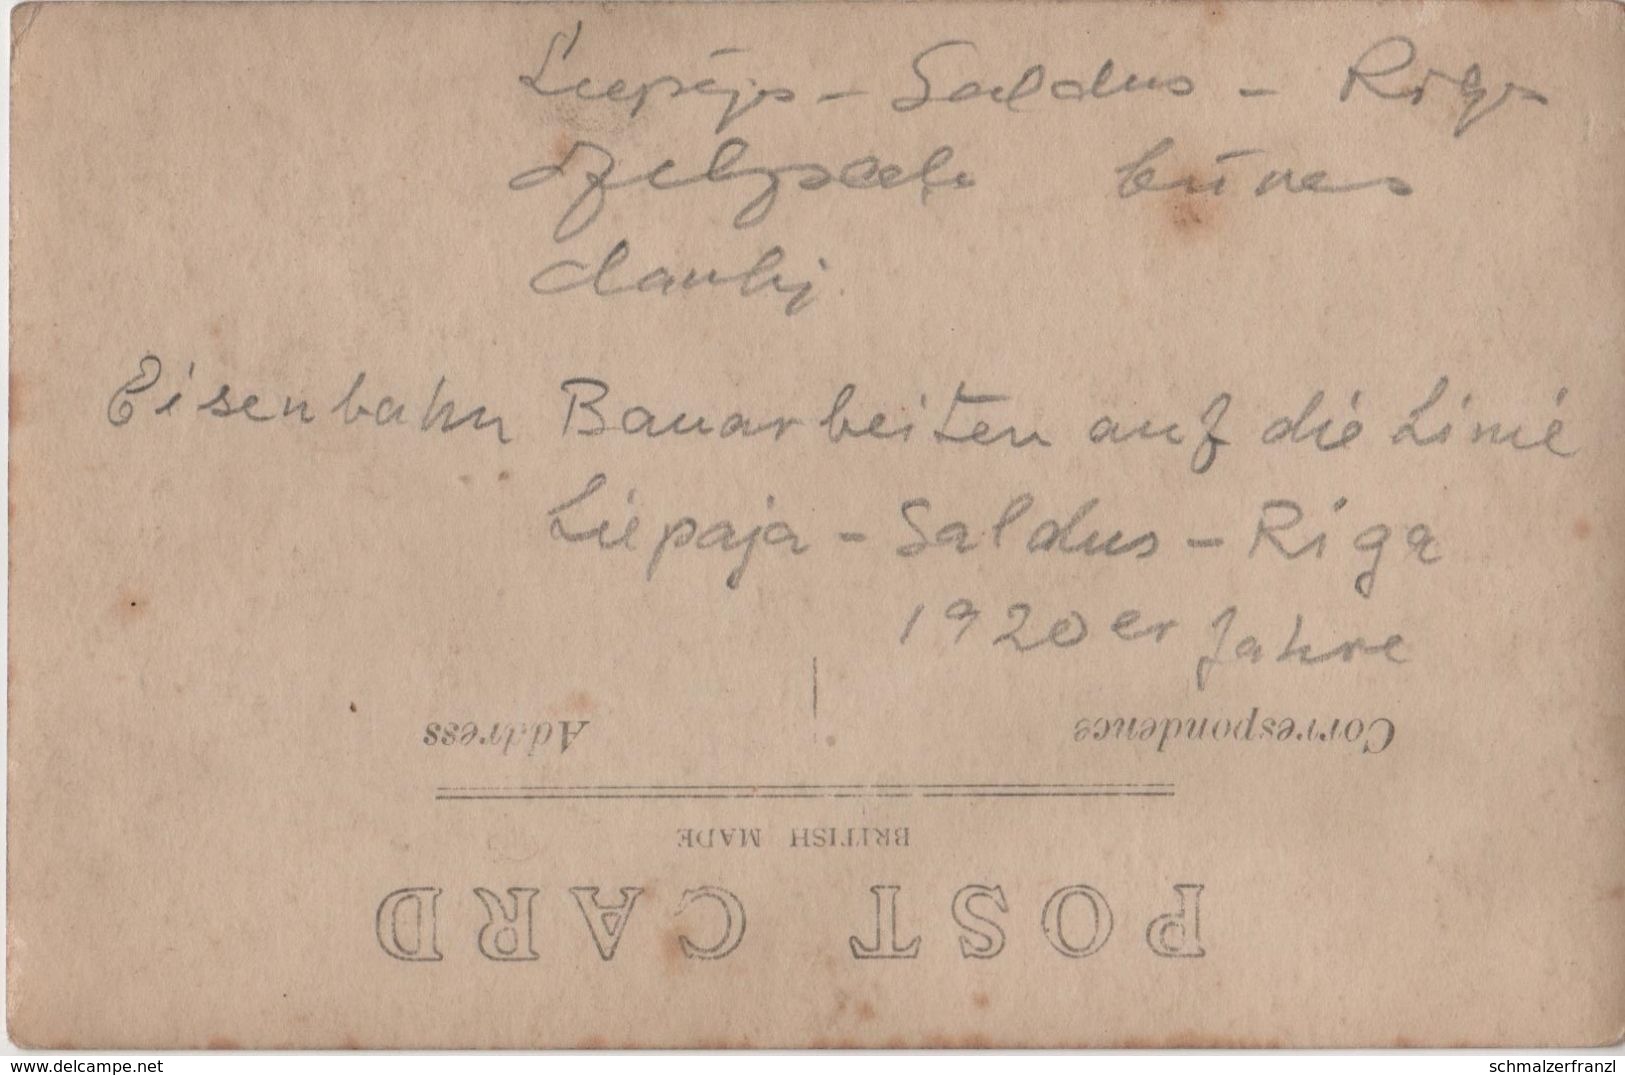 Liepāja - Saldus - Rīga
dzelzceļa būves
darbi
Eisenbahn Bauarbeiten auf die Linie
Liepaja - Saldus - Riga
1920er Jahre
Correspondence Address
BRITISH MADE
POST CARD
delcampe.net
schmalzerfranzl